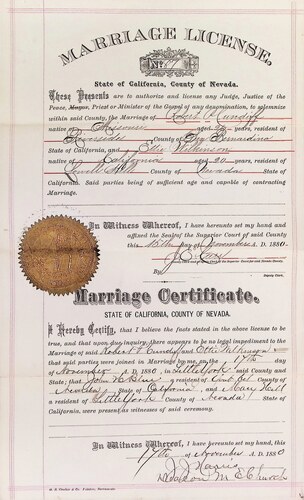 MARRIAGE LICENSE,
No.
State of California, County of Nevada.
These Presents are to authorize and license any Judge, Justice of the
Peace, Mayor, Priest or Minister of the Gospel of any denomination, to solemnize
within said County, the Marriage of Robert P. Cundiff
native of Missouri aged years, resident of
Riverside County of San Bernardino
State of California, and Ollie Wilkinson
native of California aged 20 years, resident of
County of Nevada
State of California. Said parties being of sufficient age and capable of contracting
Marriage.
In Witness Whereof, I have hereunto set my hand and
affixed the Seal of the Superior Court of said County
this 15th day of November A. D. 1880
By
Deputy Clerk.
Marriage Certificate.
STATE OF CALIFORNIA, COUNTY OF NEVADA.
I Hereby Certify, that I believe the facts stated in the above license to be
true, and that upon due inquiry, there appears to be no legal impediment to the
Marriage of said Robert P. Cundiff and Ollie Wilkinson
that said parties were joined in Marriage by me, on the 17th day of
November A. D. 1880, in Little York said County and
State; that John a resident of County of
Nevada State of California, and Mary Hall
a resident of Little York County of Nevada State of
California, were present as witnesses of said ceremony.
In Witness Whereof, I have hereunto set my hand, this
17th of November A. D. 1880
J. J. Harris
Deacon M. E. Church